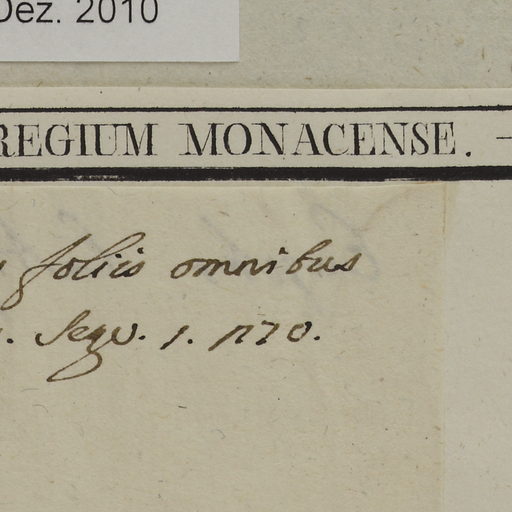 Dez. 2010
REGIUM MONACENSE. —
foliis omnibus
Seqv. 1. 1170.